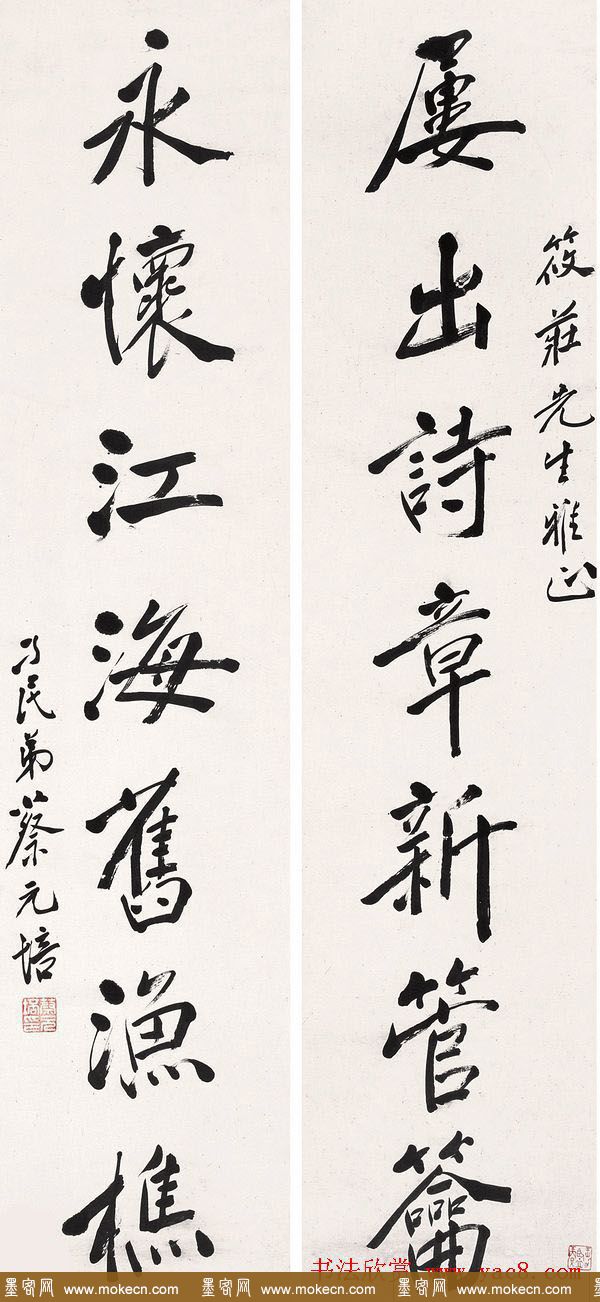 筱莊先生雅正
屢出詩章新管籥
永懷江海舊漁樵
孑民弟蔡元培
书法欣赏 www.yac8.com
墨客网 www.mokecn.com 墨客网 www.mokecn.com 墨客网 www.mokecn.com